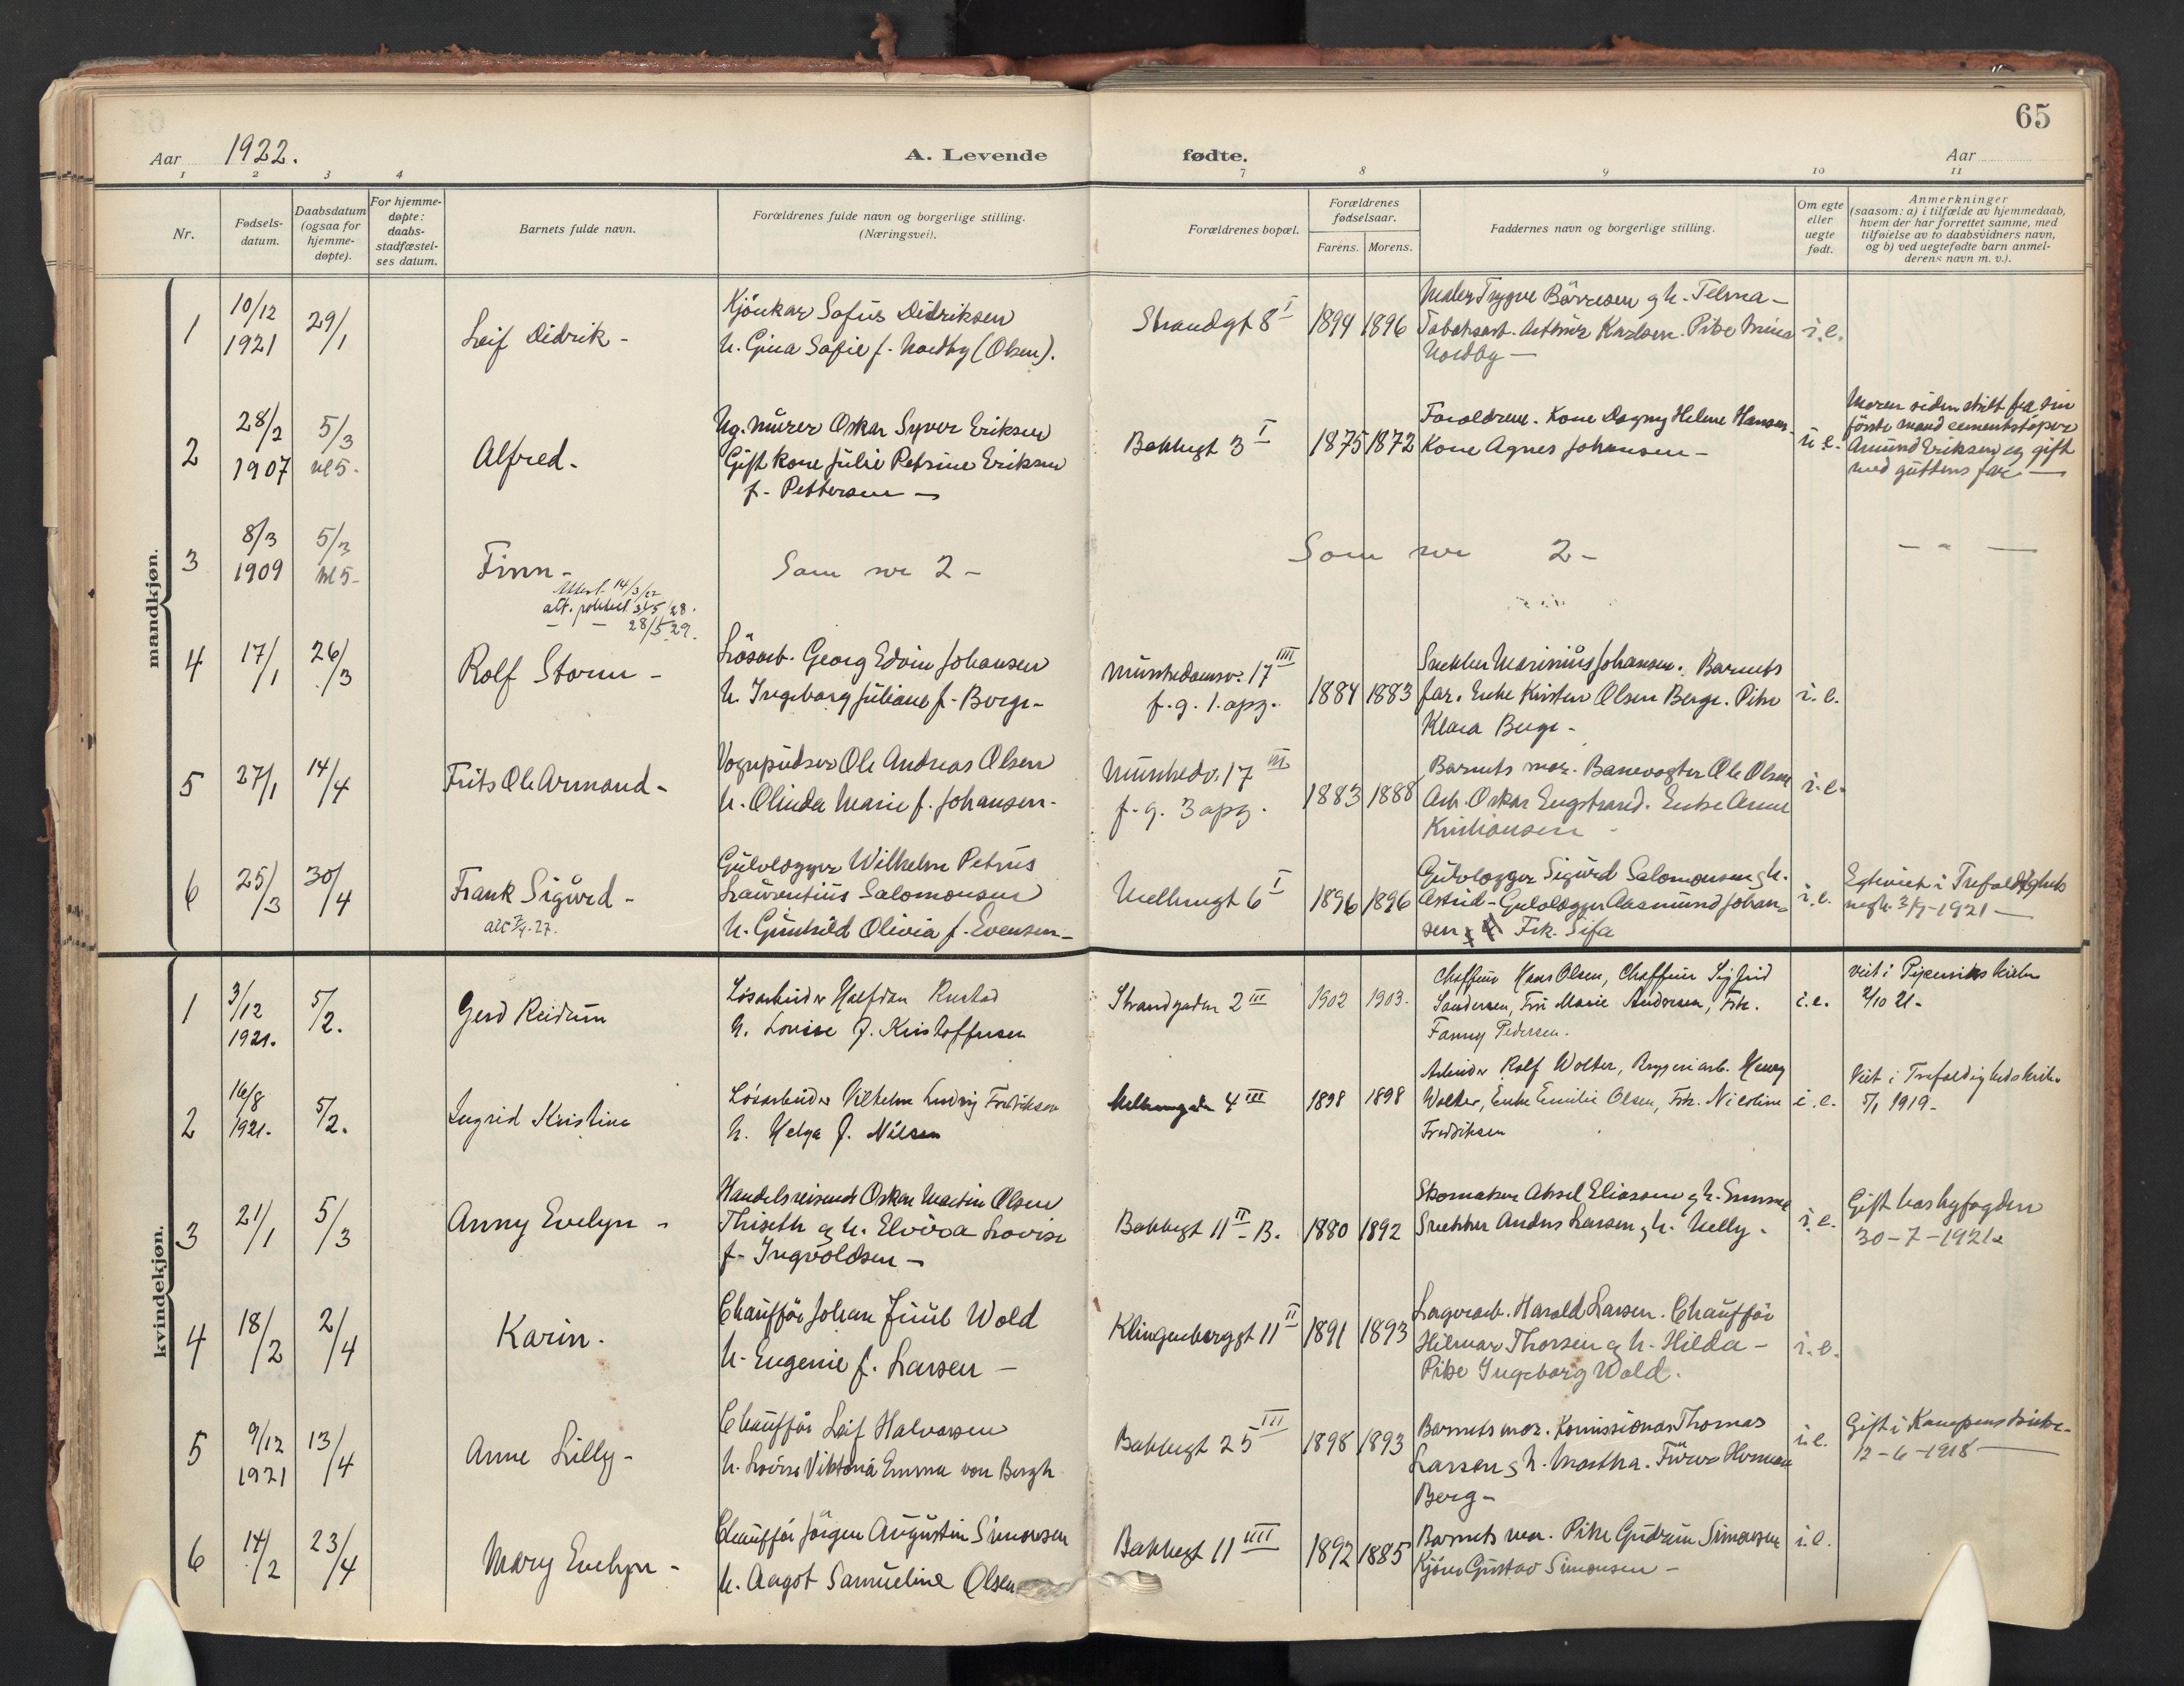 65
Aar 1922. A. Levende fødte. Aar
1 2 3 4 7 8 9 10 11
Nr.
Fødsels-
datum.
Daabsdatum
(ogsaa for
hjemme-
døpte).
For hjemme-
døpte:
daabs-
stadfæstel-
ses datum.
Barnets fulde navn.
Forældrenes fulde navn og borgerlige stilling.
(Næringsvei).
Forældrenes bopæl.
Forældrenes
fødselsaar.
Farens. Morens.
Faddernes navn og borgerlige stilling.
Om egte
eller
uegte
født.
Anmerkninger
(saasom: a) i tilfælde av hjemmedaab,
hvem der har forrettet samme, med
tilføielse av to daabsvidners navn,
og b) ved uegtefødte barn anmel-
derens navn m. v.).
mandkjøn.
1
10/12
1921
29/1
Leif Didrik -
Sofus Didriksen
h. Gina Sofie f. Nordby (Olsen).
Strandgt 8 I
1894 1896
Maler Trygve Börresen g h. Telma -
Arthur Karlsen. Pike
Nordby -
i.e.
2
28/2
1907
5/3
kl 5-
Alfred.
Ug. murer Oskar Syver Eriksen
Gift kone Julie Petrine Eriksen
f. Pettersen -
Bakkegt 3 I
1875 1872
Foreldrene. Kone Dagny Helene Hansen.
Kone Agnes Johansen -
u.e.
Moren siden skilt fra sin
förste mand cementstøper
Amund Eriksen og gift
med guttens far -
3
8/3
1909
5/3
kl 5-
Finn -
14/3/22
28
28/5 29.
Som nr 2 -
Som nr 2 -
- " -
4
17/1
26/3
Rolf Storm -
Lösarb. Georg Edvin Johansen
h. Ingeborg Juliane f. Berge -
Munkedamsv. 17 IIII
f. g. 1. opg.
1884 1883
Snekker Marinius Johansen. Barnets
far. Enke Kirsten Olsen Berge. Pike
Klara Berge -
i.e.
5
27/1
14/4
Frits Ole Armand -
Vognpudser Ole Andreas Olsen
h. Olinda Marie f. Johansen -
Munkedv. 17 III
f. g. 3 opg.
1883 1888
Barnets mor. Banevogter Ole Olsen
Arb. Oskar Engstrand. Enke Anne
Kristiansen
i.e.
6
25/3
30/4
Frank Sigurd -
Gulvlægger Wilhelm Petrus
Laurentius Salomonsen
h. Gunhild Olivia f. Evensen -
Mellemgt 6 I
1896 1896
Gulvlægger Sigurd Salomonsen g h.
Astrid - Gulvlægger Aasmund Johan-
sen Frk. Sifa
i.e.
Egteviet i Trefoldigheds
mgh. 3/9-1921 -
kvindekjøn.
1
3/12
1921.
5/2.
Gerd Reidun
Løsarbeider Halfdan Rustad
h. Louise f. Kristoffersen
Strandgaden 2 III
1902 1903.
Chaffeur Hans Olsen, Chaffeur Sigfrid
Sandersen, Fru Marie Andresen, Frk.
Fanny Pedersen.
i.e.
viet i Piperviks kirke
2/10 21.
2
16/8
1921.
5/2.
Ingrid Kristine
Løsarbeider Vilhelm Ludvig Fredriksen
h. Helga f. Nilsen
Mellemgaden 4 III
1898 1898
Arbeider Rolf Wolter, Bryggeriarb. Henry
Wolter, Enke Emilie Olsen, Frk. Nicoline
Fredriksen
i.e.
Viet i Trefoldighedskirke
5/1 1919.
3
21/1
5/3
Anny Evelyn -
Handelsreisende Oskar Martin Olsen
Thiseth g h. Elvira Lovise
f. Ingvoldsen -
Bakkegt 11 II - B.
1880 1892
Skomaker Aksel Eliassen g h. Emma
Snekker Anders Larsen g h. Nelly -
i.e.
Gift hos byfogden
30-7-1921
4
18/2
2/4
Karin.
Chaufför Johan Juul Wold
h. Eugenie f. Larsen -
Klingenberggt 11 II
1891 1893
Lagerarb. Harald Larsen. Chaufför
Hilmar Thorsen g h. Hilda -
Pike Ingeborg Wold.
i.e.
5
9/12
1921
13/4
Anne Lilly -
Chaufför Leif Halvorsen
h. Lovise Viktoria Emma von Bergh
Bakkegt 25 III
1898 1893
Barnets mor. Komissionær Thomas
Larsen g h. Martha. Furer Herman
Berg -
i.e.
Gift i Kampens kirke -
12-6-1918 -
6
14/2
23/4
Mary Evelyn -
Chaufför Jörgen Augustin Simonsen
h. Aagot Samueline Olsen
Bakkegt 11 IIII
1892 1885
Barnets mor. Pike Gudrun Simonsen
Gustav Simonsen -
i.e.